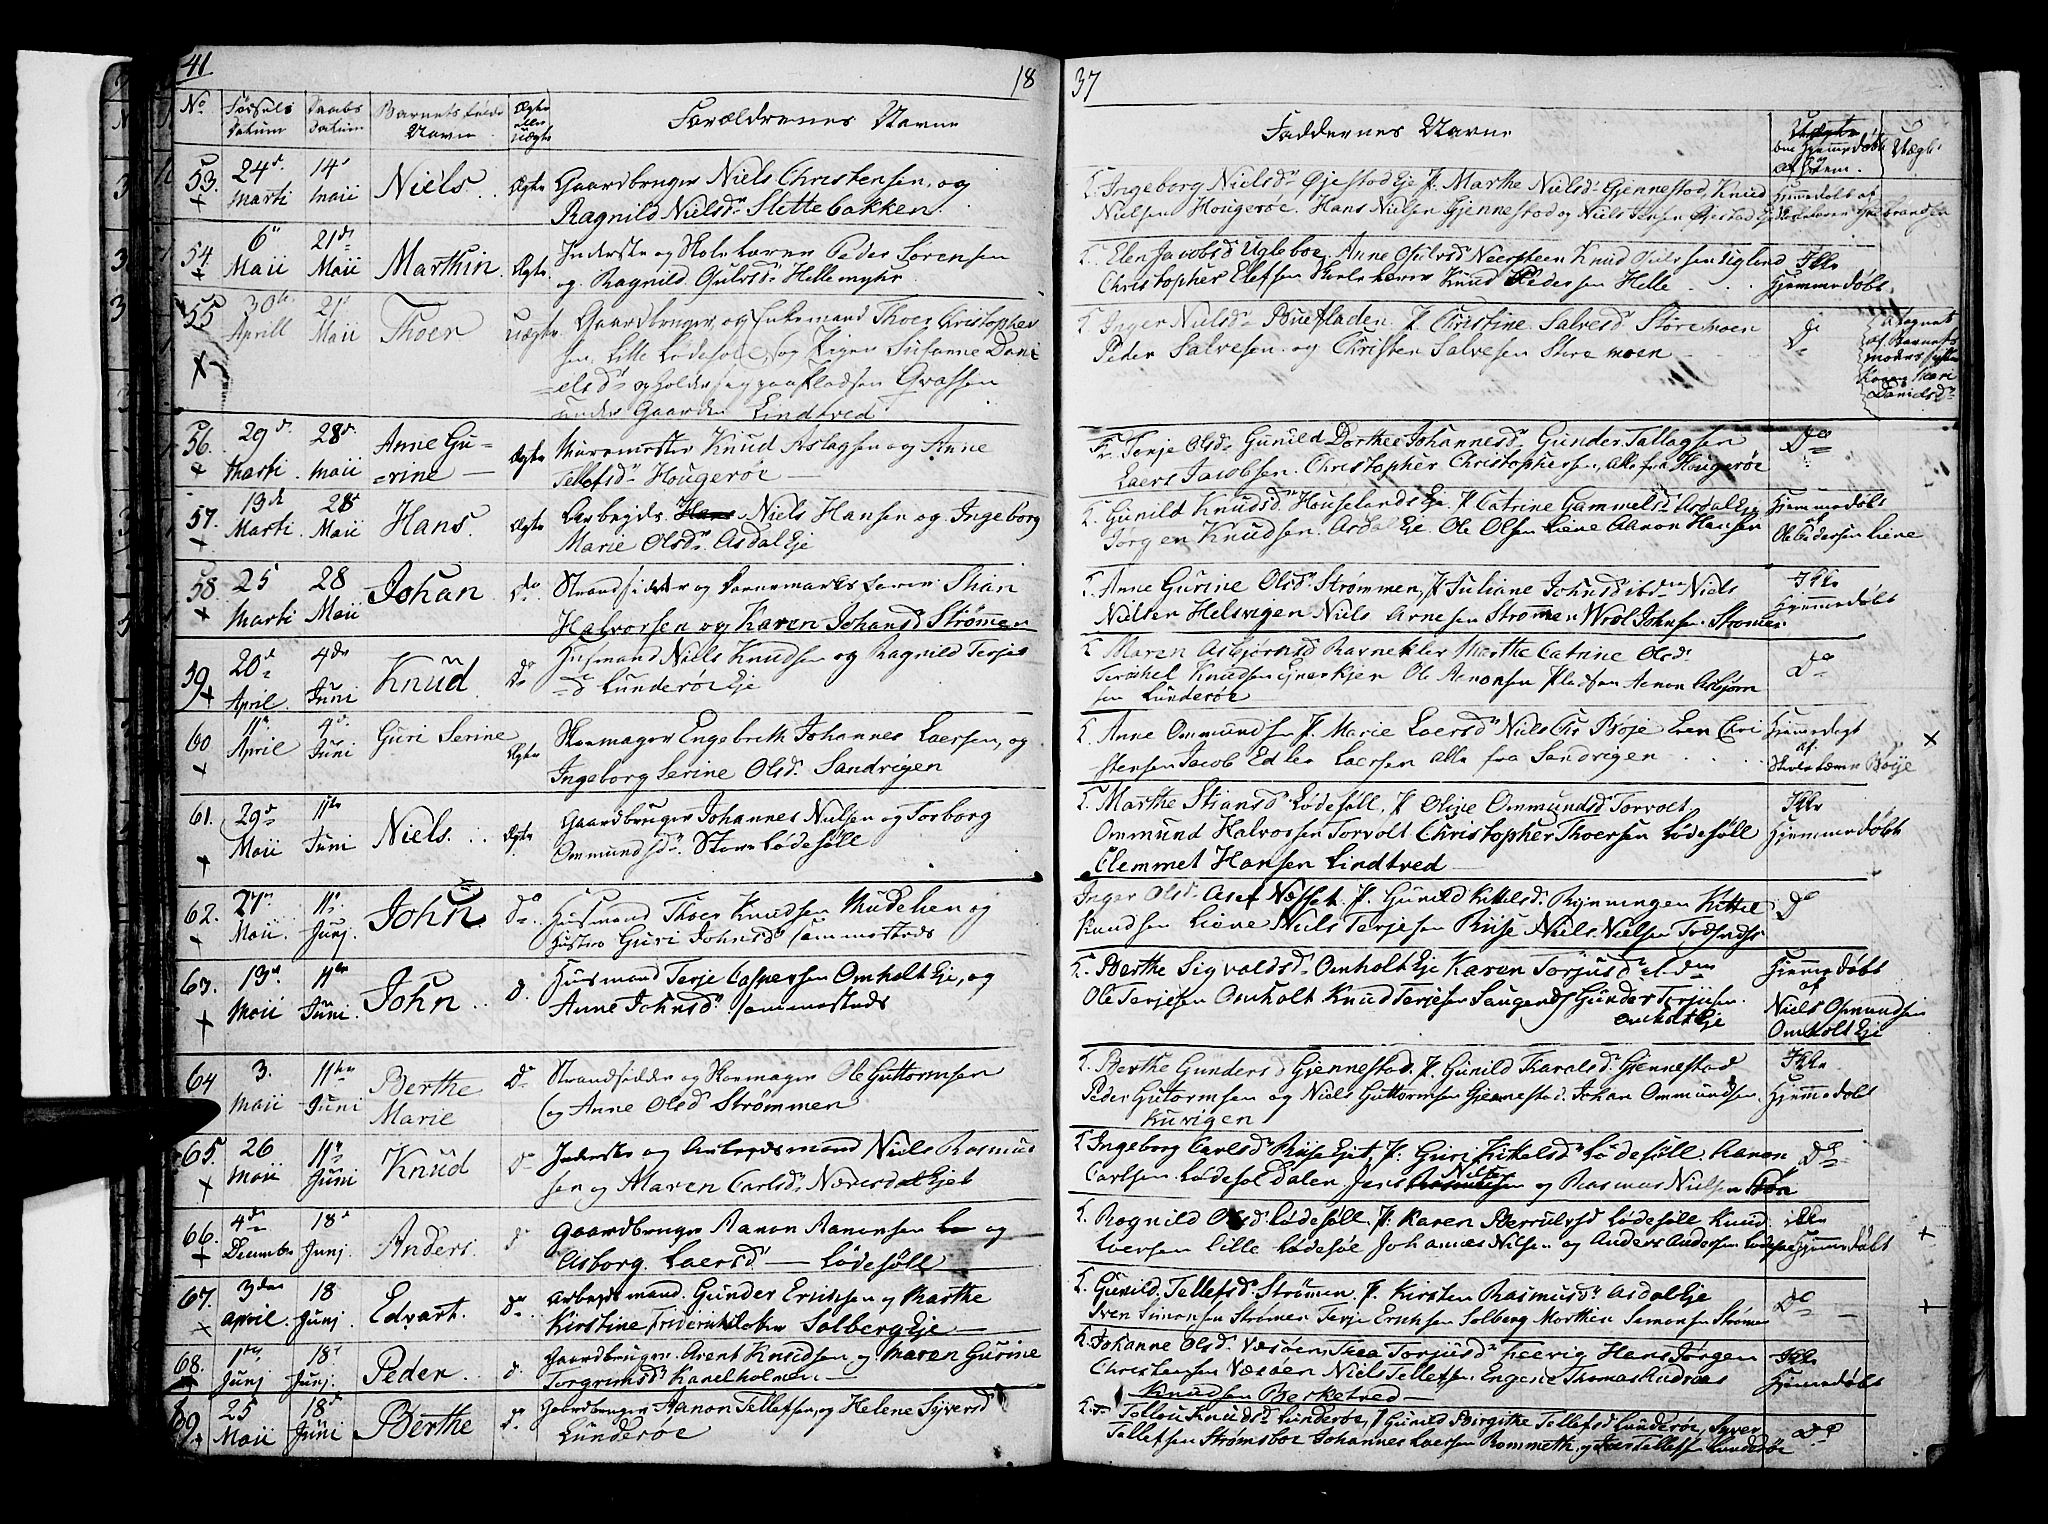 41
18
No
Fødsels Datum
Daabs Datum
Barnets fulde Navn
Ægte eller Uægte
Forældrenes Navne
53. 24d Marti 14d Maii Niels Ægte Gaardbruger Niels Christensen, og
Ragnild Nielsd. Slettebakken.
54. 6te Maii 21de Maii Marthin Ægte Inderste og Skolelærer Peder Sørensen
og Ragnild Gulvsd. Hellemyhr
55 30te Aprill 21d Maii Thoer Uægte Gaardbruger og Enkemand Thoer Christopher
sen Lille Lødesøl og Pigen Susanne Dani
elsd. opholder sig paa Pladsen Græssen
under Gaarden Lindtved
56. 29d. Marti 28d. Maii Anne Gu=
=rine Ægte Muremester Knud Aslagsen og Anne
Tellefsd. Hougerøe
57. 13de Marti 28d Maii Hans. Ægte Arbejds. Hans Niels Hansen og Ingeborg
Marie Olsd. Asdal Eje
58. 25 Marti 28 Maii Johan Do Strandsidder og
Halvorsen og Karen Johansd Strømmen
59 20d April. 4de Juni Knud Do Husmand Niels Knudsen og Ragnild Terjes
D Lunderøe Eje
60 11te April 4d. Juni Guri Serine Ægte Skomager Engebreth Johannes Laersen, og
Ingeborg Serine Olsd. Sandvigen
61. 29d Maii 11te Juni Niels. Ægte Gaardbruger Johannes Nielsen og Torborg
Ommundsd. Store Lødesøll
62. 27de Maii. 11te Junj. John Do Husmand Thoer Knudsen og
Hustro Guri Johnsd. sammesteds
63. 13de Maii 11te Juni John. D. Husmand Terje Caspersen Omholt Eje, og
Anne Johnsd. sammesteds
64 3. Maii 11te Juni Berthe
Marie Do Strandsidder og Skomager Ole Guttormsen
og Anne Olsd Strømmen
65. 26 Maii 11te Juni Knud Do Inderste og Arbejdsmand Niels Rasmud
sen og Maren Carlsd. Næversdal Ejet
66. 4de Decembr 18d Junj. Anders. Do Gaardbruger Aanon Aanonsen og
Asborg Laersd. Lødesøll
67. 3die April. 18 Junj. Edvart. Do Arbejdsmand. Gunder Ericksen og Marthe
Kirstine Solberg Eje
68. 1te Junj 18d Junj. Peder. D. Gaardbruger. Arent Knudsen og Maren Gurine
Torgrimsd. Kanelholmen
69. 25 Maii 18d Juni Berthe Do Gaardbruger Aanon Tellefsen, og Helene Syversd
Lunderøe
37
Faddernes Navne
om Hjemmedøbt
Uægte
Ingeborg Nielsd. Øjestad Eje P. Marthe Nielsd. Gjennestad, Knud
Nielsen Hougerøe. Hans Nielsen Gjennestad og Niels Jensen Øjestad Eje
Hjemmedøbt af
Elen Jacobsd Ugleboe Anne Gulvsd Neersteen Knud
Christopher Elefsen Skolelærer Knud Pedersen Helle
Ikke
Hjemmedøbt
Inger Nielsd. Buefladen. P. Christine Salvesd Støremoen
Peder Salvesen og Christen Salvesen Støremoen
Do
af Barnets
moders
Karen Mari
Danielsd.
Fr. Torje Olsd. Gunild Dorthee Johannesd. Gunder Tallagsen
Laers Jacobsen. Christopher Christophersen, alle fra Hougerøe
Do
Gunild Knudsd. Houselands Eje. P Catrine Gammelsd. Asdal Eje
Jørgen Knudsen. Asdal Eje. Ole Olsen Liene Aanon Hansen
Hjemmedøbt
af
Ole Pedersen Liene
Anne Gurine Olsd. Strømmen, P Juliane Johnsd ibdm Niels
Nielsen Helvigen Niels Arnesen Strømmen Wrol Johnsen Strømmen
Ikke
Hjemmedøbt
Maren Asbjørnsd Ravnekler Marthe Catrine Olsd.
Terkel Knudsen Ole Aanonsen Pladsen Aanon Asbjørn
sen Lunderøe
Do
Anne Ommundsen P. Marie Laersd Niels Chr Bøje Even Chri
stensen Jacob Edlev Laersen alle fra Sandvigen
Hjemmedøbt
af
Skolelærer Bøje
Marthe Stiansd Lødesøll. P Olije Ommundsd. Torvolt
Ommund Halvorsen Torvolt Christopher Thoersen Lødesøll
Clemmet Hansen Lindtved
Ikke
Hjemmedøbt
Inger Olsd. Næsset. P. Gunild Kittilsd. Rønningen Kittel
Knudsen Liene Niels Terjesen Riise Niels Nielsen
Do
Berthe Sigvaldsd. Omholt Eje Karen Torjusd.
Ole Terjesen Omholt Knud Terjesen Gunder Terjusen.
Omholt Eje
Hjemmedøbt
af
Niels Omundsen
Omholt Eje
Berthe Gundersd Gjennestad. P. Gunild Taralsd. Gjennestad
Peder Gutormsen og Niels Guttormsen Gjennestad. Johan Ommundsen
Kuvigen
Ikke
Hjemmedøbt
Ingeborg Carlsd Riise Ejet, P. Guri Lødesøll. Aanon
Carlsen Lødesøl Dalen Jens Nielsen og Rasmus Nielsen
Do
Ragnild Olsd Lødesøll. P. Karen Lødesøll Knud
Iversen Lille Lødesøl Johannes Nilsen og Anders Andersen
ikke
Hjemmedøbt
Gunild Tellefsd. Strømmen. P. Kirsten Rasmusd. Asdal Eje
Sven Simonsen Strømmen Terje Erichsen Solberg Morthen Simonsen Strømen
Do
Johanne Olsd. Væsøen, Thea Torjusd. Hans Jørgen
Christensen Væsøen Niels Tellefsen Engene Thomas
Knudsen Berketved
Ikke
Hjemmedøbt
Knudsd. Lunderøe, P Gunild Birgithe Tellefsd Lunderøe, Syver
Tellefsen Strømsboe Johannes Laersen Rommeth. og Jens Tellefsen Lunderøe
Do